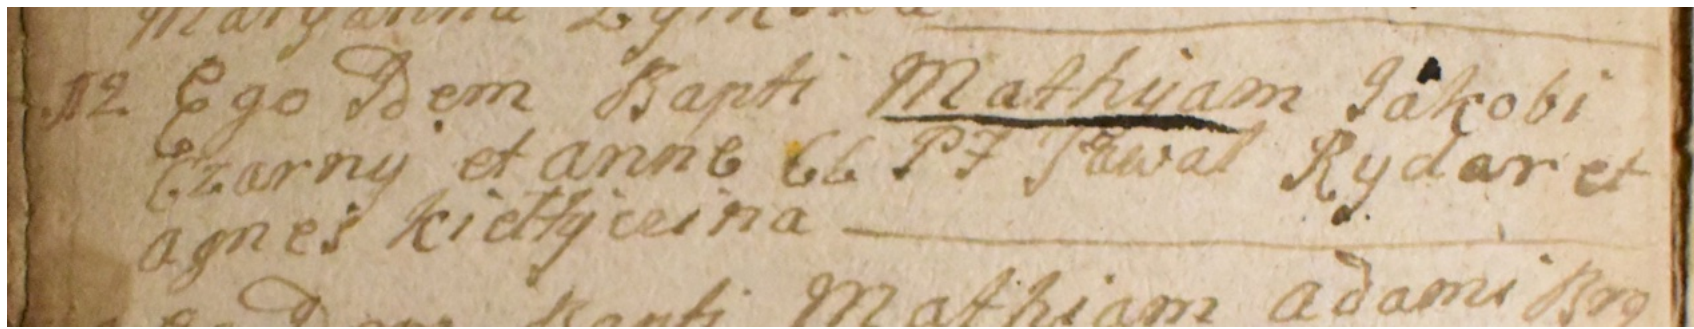 Maryanna Zym
12 Ego Idem Bapti Mathijam Jakobi
Czarny et anne CC PP Pawal Rydar et
agnes
Ego Idem Bapti Mathiam adami Bro